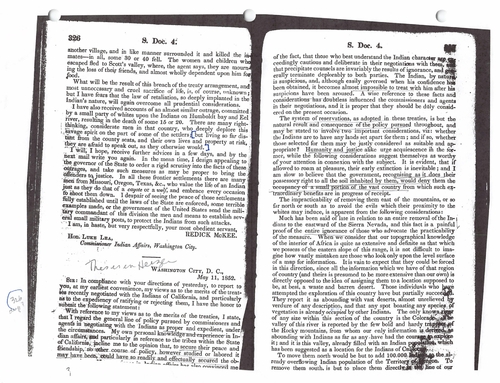 326
S. Doc. 4.
another village, and in like manner surrounded it and killed the in-
mates—in all, some 30 or 40 fell. The women and children who
escaped fled to Scott's valley, where, the agent says, they are mourn-
ing the loss of their friends, and almost wholly dependent upon him for
food.
What will be the result of this breach of the treaty arrangement, and
most unnecessary and cruel sacrifice of life, is, of course, unknown;
but I have fears that the law of retaliation, so deeply implanted in the
Indian's nature, will again overcome all prudential considerations.
I have also received accounts of an almost similar outrage, committed
by a small party of whites upon the Indians on Humboldt bay and Eel
river, resulting in the death of some 15 or 20. There are many right-
thinking, considerate men in that country, who deeply deplore this
savage spirit on the part of some of the settlers; but living so far dis-
tant from the county seats, and their own lives and property at risk,
they are afraid to speak out, as they otherwise would.
I will, I hope, receive further advices in a few days, and by the
next mail write you again. In the mean time, I design appealing to
the governor of the State to order a rigid scrutiny into the facts of these
outrages, and take such measures as may be proper to bring the
offenders to justice. In all these frontier settlements there are many
men from Missouri, Oregon, Texas, &c., who value the life of an Indian
just as they do that of a cayota or a wolf, and embrace every occasion
to shoot them down. I despair of seeing the peace of these settlements
fully established until the laws of the State are enforced, some terrible
examples made, or the government of the United States send the mili-
tary commandant of this division the men and means to establish sev-
eral small military posts, to protect the Indians from such attacks.
I am, in haste, but very respectfully, your most obedient servant,
REDICK McKEE.
Hon. Luke Lea,
Commissioner Indian Affairs, Washington City.
Washington City, D. C.,
May 11, 1852.
Sir: In compliance with your directions of yesterday, to report to
you, at my earliest convenience, my views as to the merits of the trea-
ties recently negotiated with the Indians of California, and particularly
as to the expediency of ratifying or rejecting them, I have the honor to
submit the following statement:
With reference to my views as to the merits of the treaties, I state,
that I regard the general line of policy pursued by commissioners and
agents in negotiating with the Indians as proper and expedient, under
the circumstances. My own personal knowledge and experience in In-
dian affairs, and particularly in reference to the tribes within the State
of California, incline me to the opinion that, to secure their peace and
friendship, no other course of policy, however studied or labored it
may have been, could have so readily and effectually secured the ob-
S. Doc. 4.
of the fact, that those who best understand the Indian character
ceedingly cautious and deliberate in their negotiations with them,
that precipitate counsels are invariably the results of ignorance, and
erally terminate deplorably to both parties. The Indian, by nature,
is suspicious, and, although easily governed when his confidence has
been obtained, it becomes almost impossible to treat with him after his
suspicions have been aroused. A wise reference to these facts and
considerations has doubtless influenced the commissioners and agents
in their negotiations, and it is proper that they should be duly consid-
ered on the present occasion.
The system of reservations, as adopted in these treaties, is but the
natural result and consequence of the policy pursued throughout, and
may be stated to involve two important considerations, viz: whether
the Indians are to have any lands set apart for them; and if so, whether
those selected for them may be justly considered as suitable and ap-
propriate? Humanity and justice alike urge acquiescence in the for-
mer, while the following considerations suggest themselves as worthy
of your attention in connection with the subject. It is evident, that if
allowed to roam at pleasure, their early extinction is inevitable; and I
am slow to believe that the government, recognising as it does their
possessory right to all the soil inhabited by them, would deny them the
occupancy of a small portion of the vast country from which such ex-
traordinary benefits are in progress of receipt.
The impracticability of removing them east of the mountains, or so
far north or south as to avoid the evils which their proximity to the
whites may induce, is apparent from the following considerations:
Much has been said of late in relation to an entire removal of the In-
dians to the eastward of the Sierra Nevada, and this fact is a
proof of the entire ignorance of those who advocate the practicability
of the measure. When we consider that our topographical knowledge
of the interior of Africa is quite as extensive and definite as that which
we possess of the eastern slope of this range, it is not difficult to imag-
ine how vastly mistaken are those who look only upon the level surface
of a map for information. It is vain to expect that they could be forced
in this direction, since all the information which we have of that region
of country (and theirs is presumed to be more extensive than our own) is
directly opposed to the idea of assigning them to a location supposed to
be, at best, a waste and barren desert. Those individuals who have
attempted the exploration of this country have but partially succeeded.
They report it as abounding with vast deserts, almost unrelieved by
verdure of any description, and that any spot boasting any species of
vegetation is already occupied by other Indians. The only known
of any size within this section of the country is the Colorado. The
valley of this river is reported by the few bold and hardy trappers of
the Rocky mountain, from whom our only information is derived, as
abounding with Indians as far as any have had the courage to explore
it; and it is this valley, already filled with an Indian population, which
has been suggested as a location for the Indians of California.
To move them north would be but to add 100,000 Indians to the al-
ready overflowing Indian population of the Territory of Oregon. To
remove them south, is but to place them directly in the